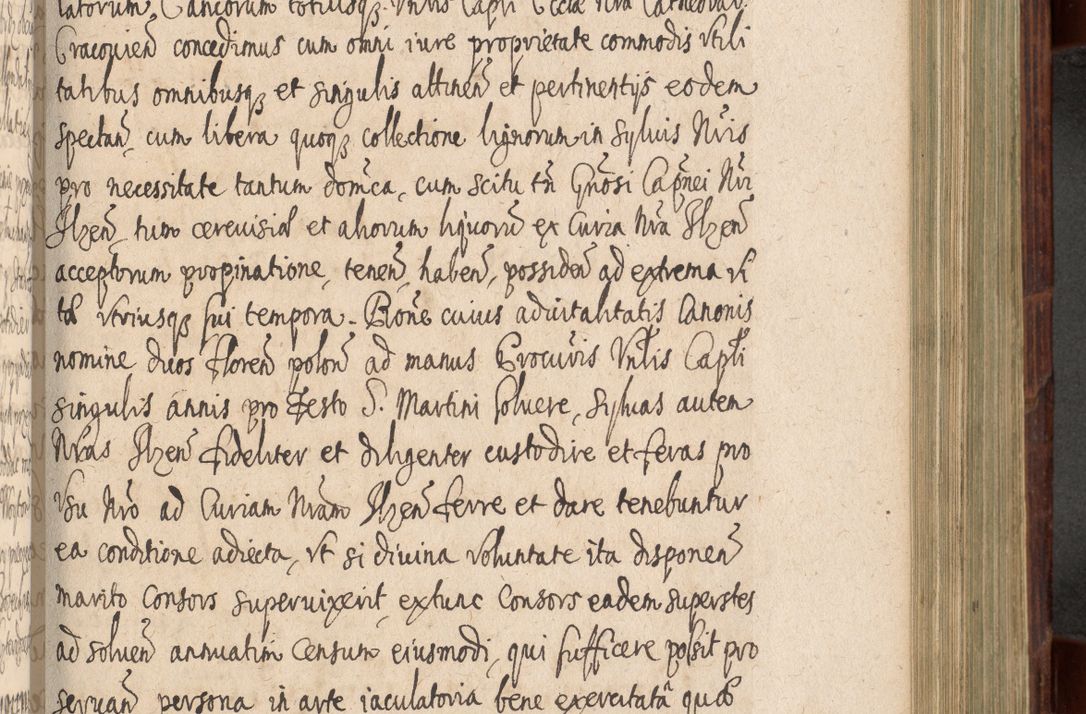 latorum, Canicorum totiusq₃ Vnlis Capli Ecclae Nrae Cathedral:
Cracouien̄ concedimus cum omni iure proprietate commodis vtili
tatibus omnibusq₃ et singulis attinen̄ et pertinentijs eodem
spectan̄, cum libera quoq₃ collectione lignorum in syluis Nr̄is
pro necessitate tantum dom̄ca, cum scitu tn̄ Gn̄osi Cap̄nei Nr̄i
Ilzen̄, tum cereuisiae et aliorum liquorū ex Curia Nra Ilzen̄
acceptorum propinatione, tenen̄, haben̄, possiden̄ ad extrema vi
tae vtriusq₃ sui tempora. Rōne cuius aduitalitatis Canonis
nomine duos floren̄ polon̄ ad manus Procur̄is Vnlis Capli
singulis annis pro Festo S. Martini soluere, syluas autem
Nras Ilzen̄ fideliter et diligenter custodire et feras pro
vsu Nrō ad Curiam Nram Ilzen̄ ferre et dare tenebuntur
ea conditione adiecta, vt si diuina voluntate ita disponen̄
marito Consors superuixerit, extunc Consors eadem superstes
ad soluen̄ annuatim Censum eiusmodi, qui sufficere possit pro
seruan̄ persona in arte iaculatoria bene exercitata quae